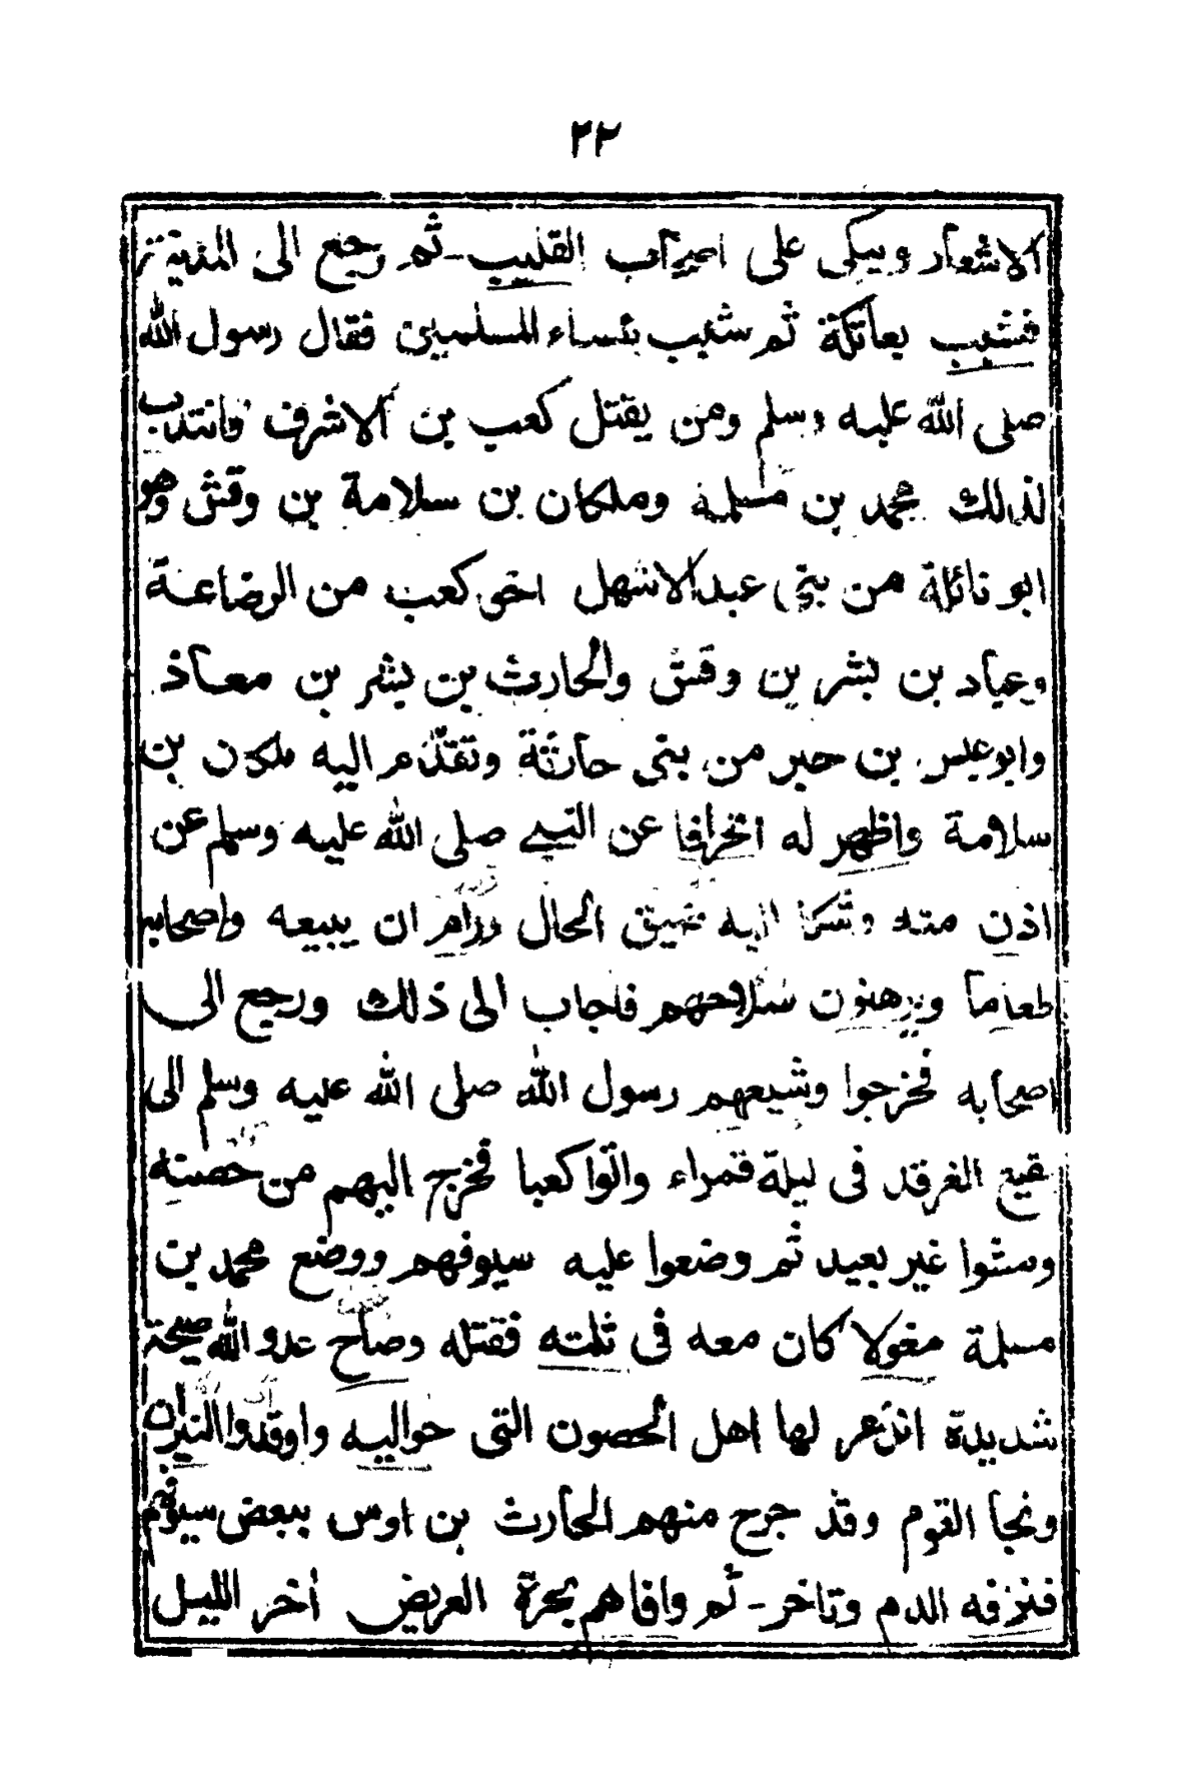 ٢٢
الاشعار ويبكى على اصحاب القليب - ثم رجع الى المدينة
فشبب بعاتكة ثم شبب بنساء المسلمين فقال رسول الله
صلى الله عليه وسلم ومن يقتل كعب بن الاشرف فانتدب
لذلك محمد بن مسلمه وملكان بن سلامة بن وقش وهو
ابو نائلة من بنى عبد الاشهل اخى كعب من الرضاعة
وعباد بن بشر بن وقش والحارث بن بشر بن معاذ
وابو عبس بن حبر من بنى حارثة وتقدم اليه ملكان بن
سلامة واظهر له انحرافا عن النبى صلى الله عليه وسلم عن
اذن منه وشكا اليه ضيق الحال ورام ان يبيعه واصحابه
طعاما ويرهنون سلاحهم فاجاب الى ذلك ورجع الى
اصحابه فخرجوا وشيعهم رسول الله صلى الله عليه وسلم الى
بقيع الغرقد فى ليلة قمراء واتوا كعبا فخرج اليهم من حصنه
ومشوا غير بعيد ثم وضعوا عليه سيوفهم ووضع محمد بن
مسلمة مغولا كان معه فى ثلته فقتله وصاح عدو الله صيحة
شديدة انذعر لها اهل الحصون التى حواليه واوقدوا النيران
ونجا القوم وقد جرح منهم الحارث بن اوس ببعض سيوفهم
فنزفه الدم وتاخر - ثم وافاهم بحرة العريض أخر الليل